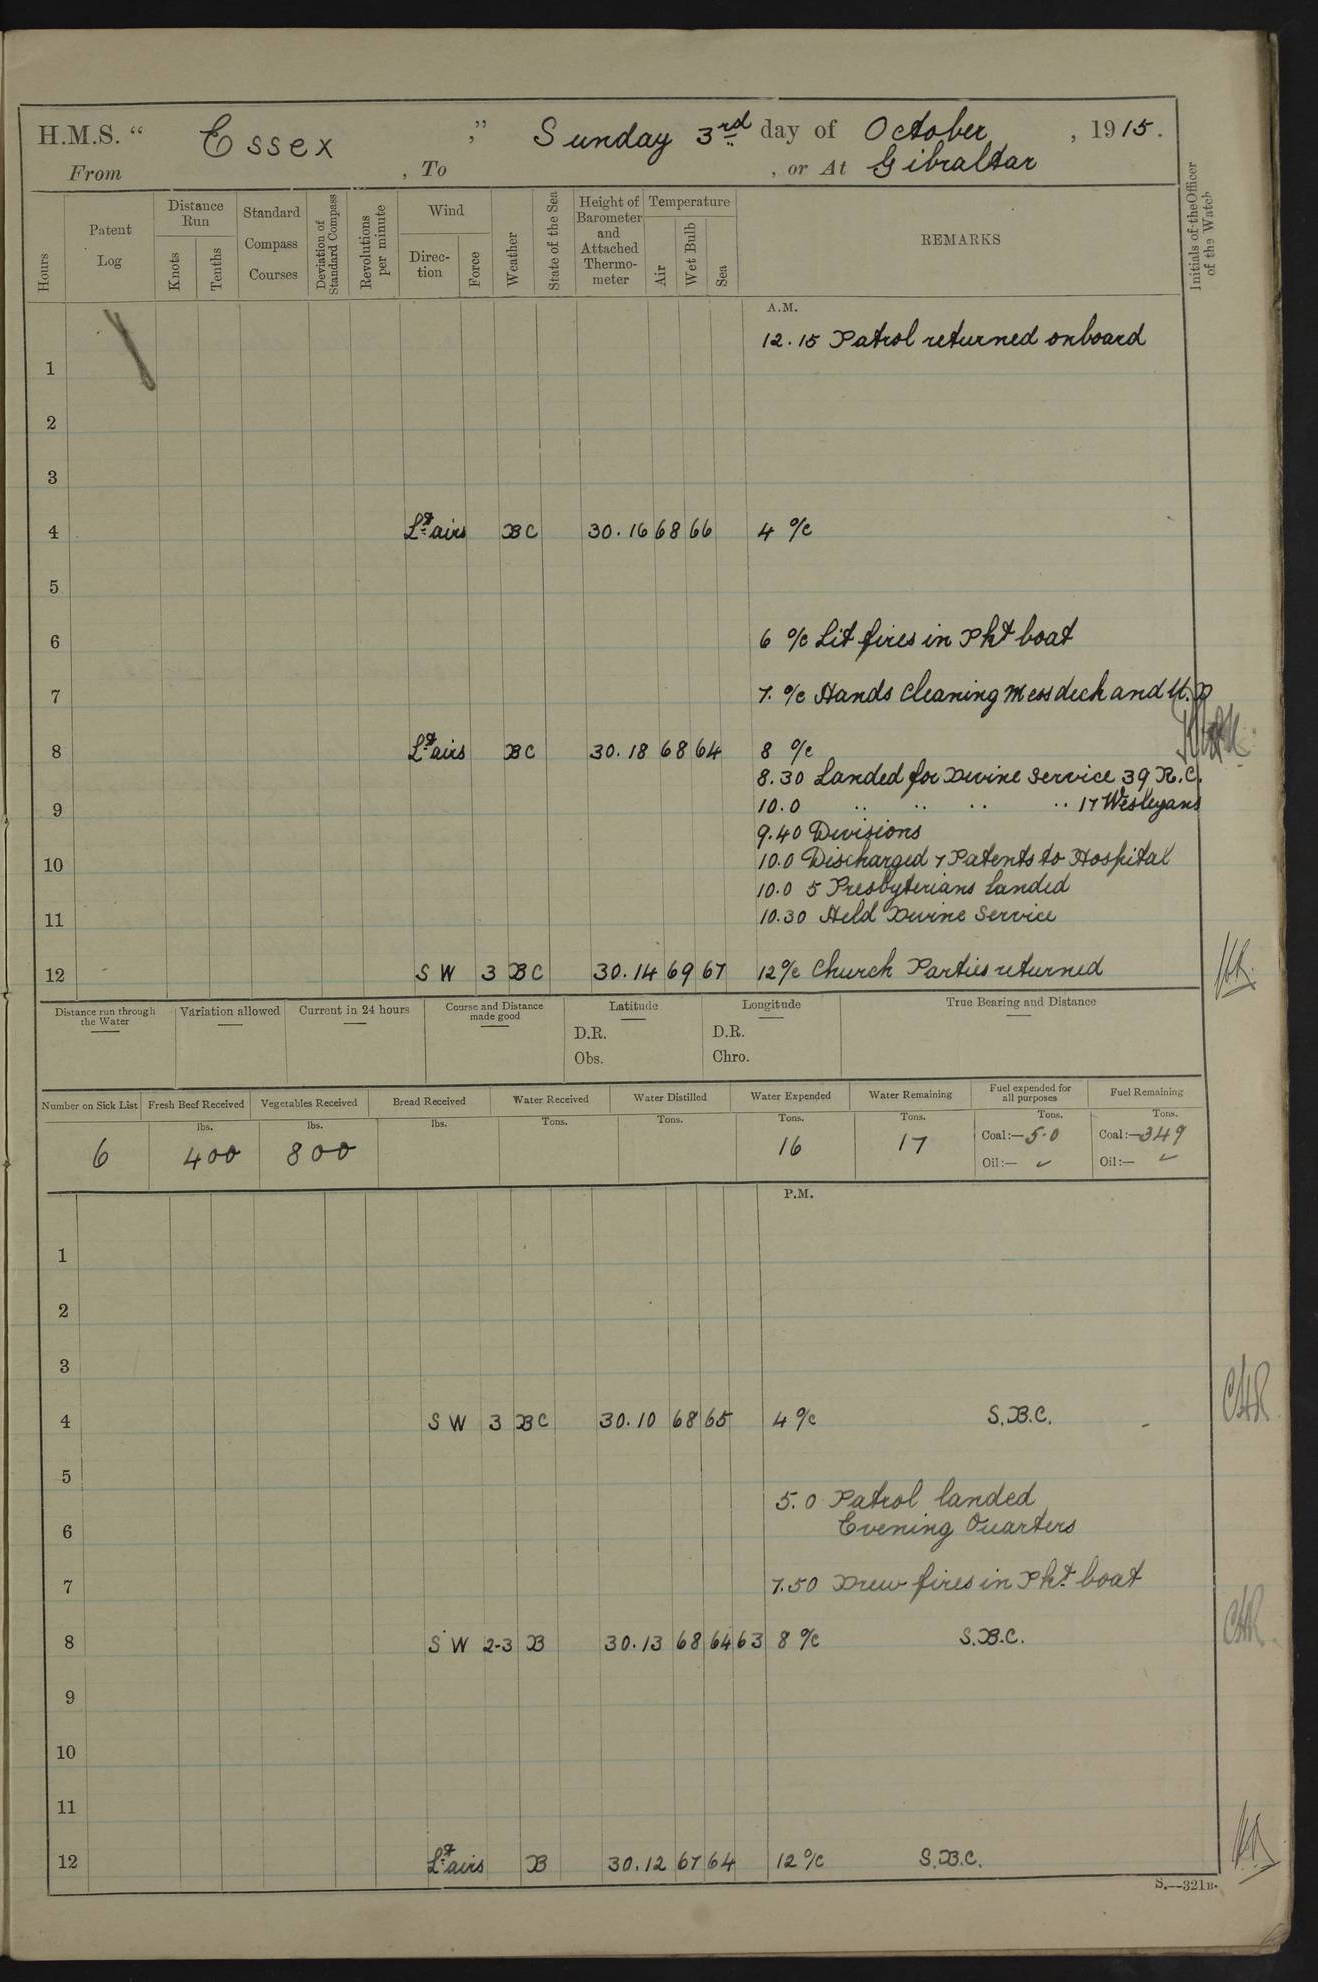 H.M.S. “ Essex ,” Sunday 3rd day of October , 1915.
From , To , or At Gibraltar
Hours
Patent Log
Distance Run
Knots
Tenths
Standard Compass Courses
Deviation of Standard Compass
Revolutions per minute
Wind
Direction
Force
Weather
State of the Sea
Height of Barometer and Attached Thermometer
Temperature
Air
Wet Bulb
Sea
REMARKS
Initials of the Officer of the Watch
A.M.
12.15 Patrol returned onboard
1
2
3
4 Lt airs BC 30.16 68 66 4 o/c
5
6 6 o/c Lit fires in Pkt boat
7 7. o/c Hands cleaning Messdeck and U.D
8 Lt airs BC 30.18 68 64 8 o/c
8.30 Landed for Divine Service 39 R.C.
9 10.0 .. .. .. .. 17 Wesleyans
9.40 Divisions
10 10.0 Discharged 7 Patents to Hospital
10.0 5 Presbyterians landed
11 10.30 Held Divine Service
12 SW 3 BC 30.14 69 67 12 o/c Church Parties returned
Distance run through the Water
Variation allowed
Current in 24 hours
Course and Distance made good
Latitude
D.R.
Obs.
Longitude
D.R.
Chro.
True Bearing and Distance
Number on Sick List
6
Fresh Beef Received
lbs.
400
Vegetables Received
lbs.
800
Bread Received
lbs.
Water Received
Tons.
Water Distilled
Tons.
Water Expended
Tons.
16
Water Remaining
Tons.
17
Fuel expended for all purposes
Tons.
Coal:— 50
Oil:— ✓
Fuel Remaining
Tons.
Coal:— 349
Oil:— ✓
P.M.
1
2
3
4 SW 3 BC 30.10 68 65 4 o/c S.B.C.
5
5.0 Patrol landed
6 Evening Quarters
7 7.50 Drew fires in Pkt boat
8 SW 2-3 B 30.13 68 64 63 8 o/c S.B.C.
9
10
11
12 Lt airs B 30.12 67 64 12 o/c S.B.C.
S.—321B.